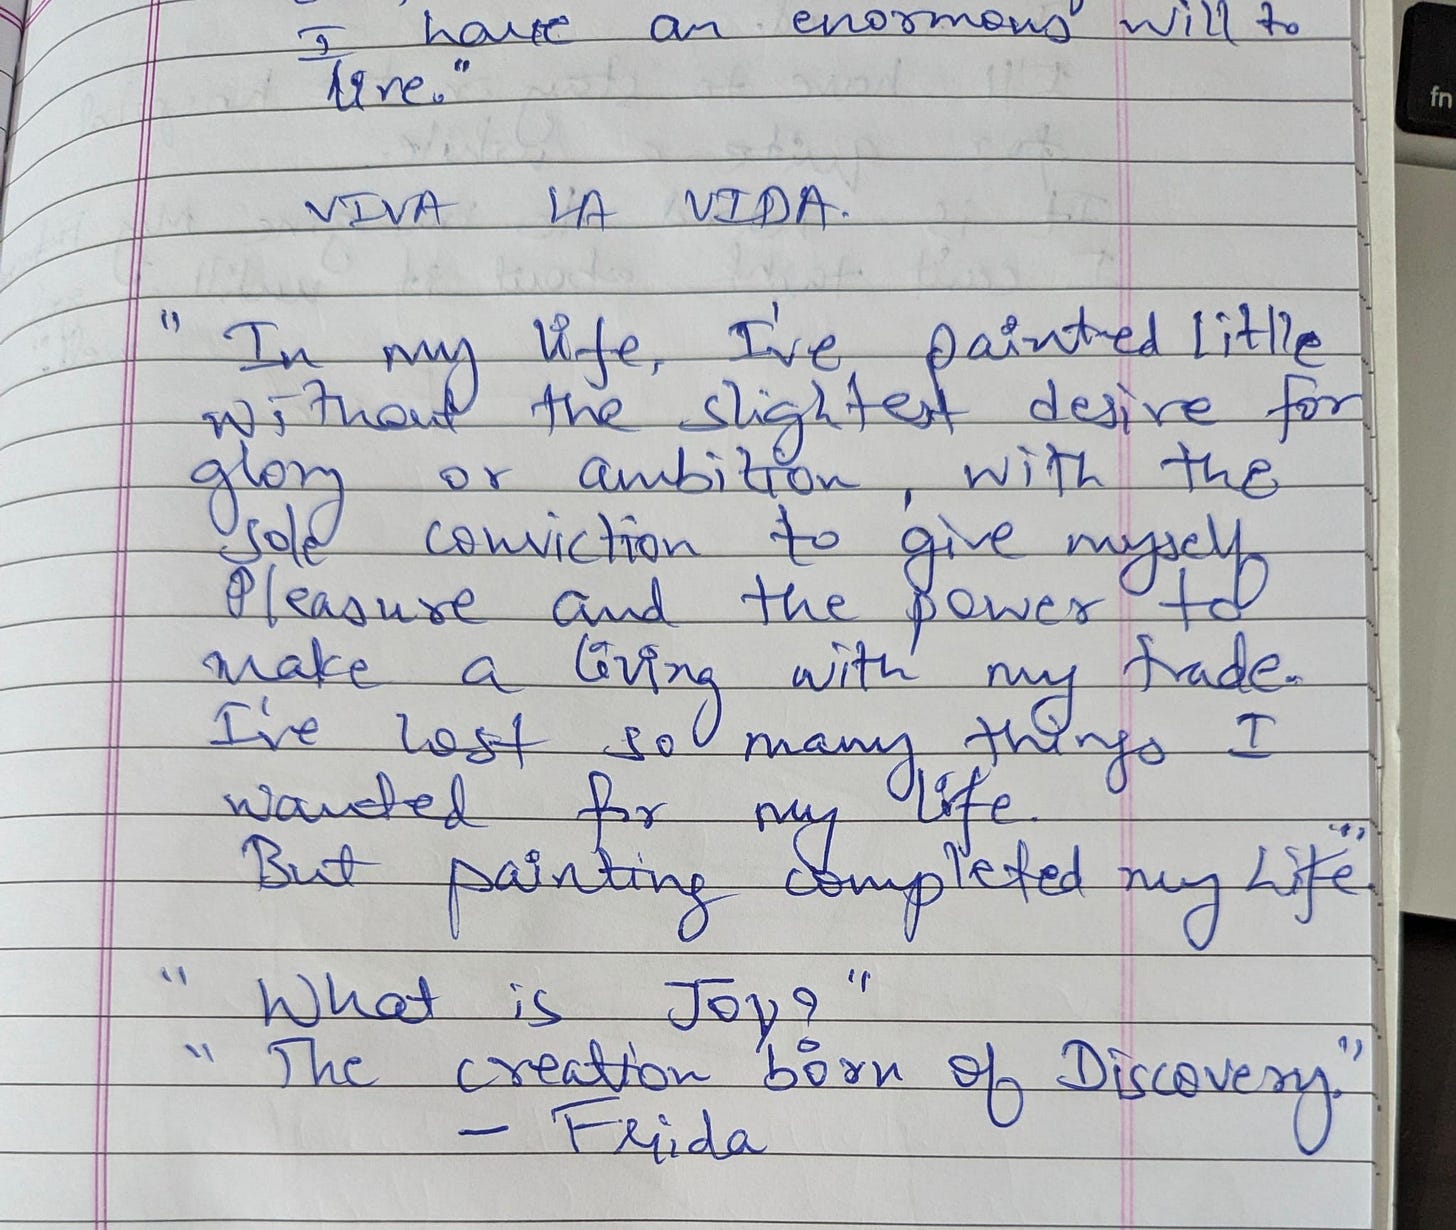 I have an enormous will to
live."
VIVA LA VIDA.
" In my life, I've painted little
without the slightest desire for
glory or ambition, with the
sole conviction to give myself
Pleasure and the power to
make a living with my trade.
I've lost so many things I
wanted for my life.
But painting completed my Life."
" What is Joy?"
" The creation born of Discovery."
- Frida
fn